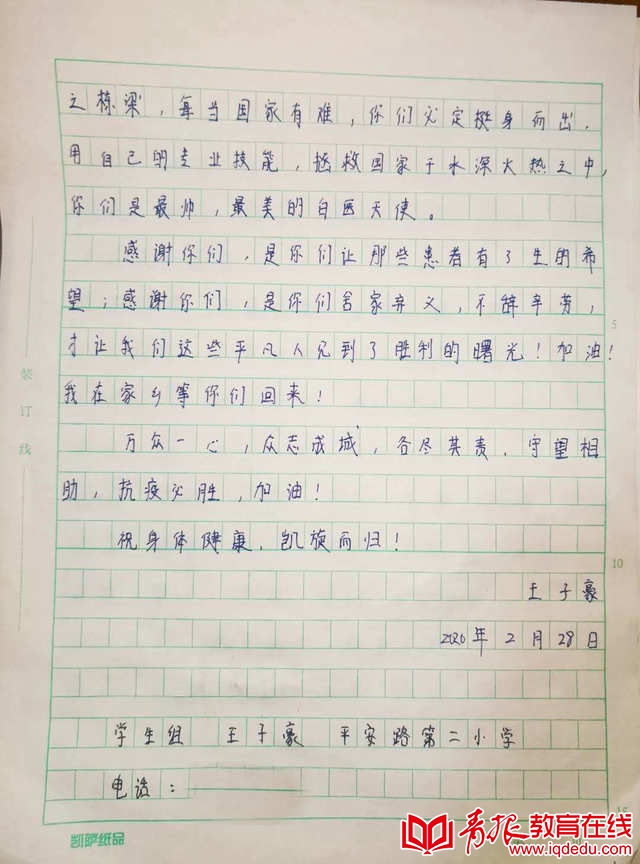 之栋梁，每当国家有难，你们必定挺身而出，
用自己的专业技能，拯救国家于水深火热之中，
你们是最帅，最美的白医天使。
感谢你们，是你们让那些患者有了生的希
望；感谢你们，是你们舍家弃义，不辞辛劳，
才让我们这些平凡人见到了胜利的曙光！加油！
我在家乡等你们回来！
万众一心，众志成城，各尽其责，守望相
助，抗疫必胜，加油！
祝身体健康，凯旋而归！
王子豪
2020年2月28日
学生组 王子豪 平安路第二小学
电话：
装订线
5
10
15
凯萨纸品
青报教育在线
www.iqdedu.com